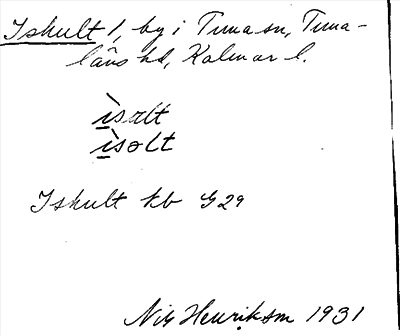 Iskult 1, by i Tuna sn, Tuna-
läns hd, Kalmar l.
ìsɑlt
ìsolt
Iskult kb G29
Nils Henriksson 1931